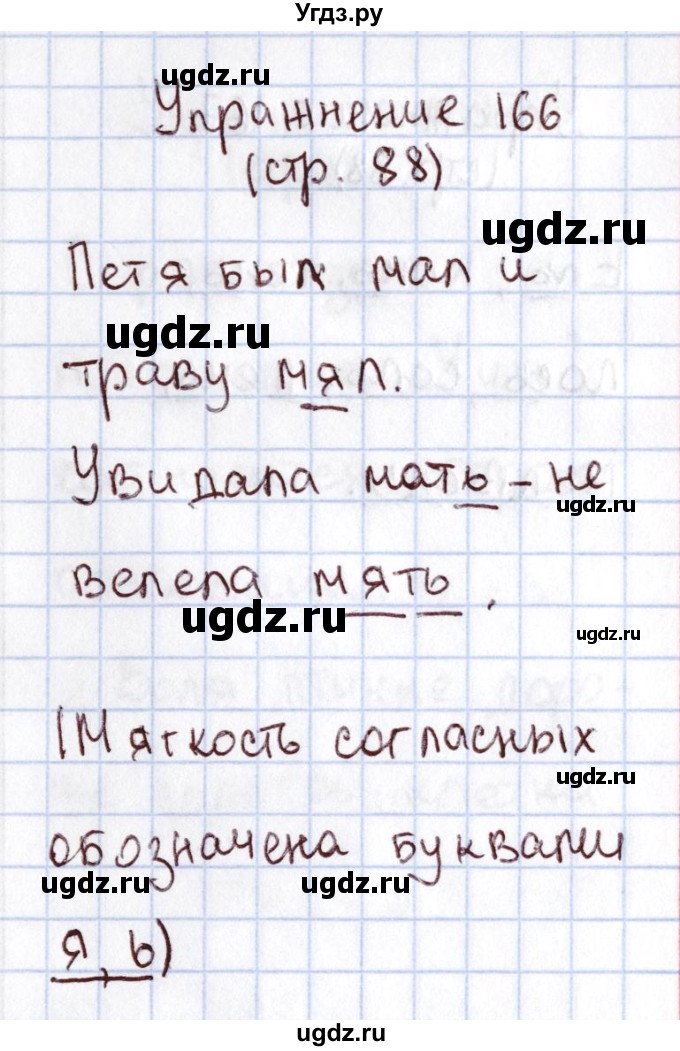 Угдз.ру
ugdz.ru
Упражнение 166
(стр. 88)
ugdz.ru
Петя был мал и
ugdz.ru
траву мял.
Увидала мать - не
ugdz.ru
велела мять.
ugdz.ru
ugdz.ru
(Мягкость согласных
ugdz.ru
обозначена буквами
ugdz.ru ugdz.ru
я, ь)
ugdz.ru